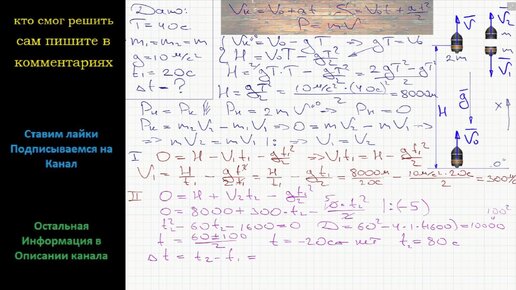 кто смог решить
сам пишите в
комментариях
Ставим лайки
Подписываемся на
Канал
Остальная
Информация в
Описании канала
Дано:
T=40с
m₁=m₂=m
g=10м/с²
t₁=20с
Δt-?
Vк=V₀+at S=V₀t+at²/2
P=mV
{Vк=V₀-gT => gT=V₀
{H=V₀T-gT²/2
H=gT·T-gT²/2=2gT²-gT²/2
H=gT²/2=10м/с²·(40с)²/2=8000м
Pн=Pк Pн=2mV => Pк=0
Pк=mV₂-mV₁ => 0=mV₂-mV₁
=> mV₂=mV₁ |: => V₁=V₂
I 0=H-V₁t₁-gt₁²/2 => V₁t₁=H-gt₁²/2
V₁=H/t₁-gt₁²/2t₁=H/t₁-gt₁/2=8000м/20с-10м/с²·20с/2=300м/с
II 0=H+V₂t₂-gt₂²/2
0=8000+300·t₂-10·t₂²/2 |:(-5)
t₂²-60t₂-1600=0 D=60²-4·1·(-1600)=10000
100²
t=60±100/2 t=-20с-нет t₂=80с
Δt=t₂-t₁=
V
m
m
V₁
2m
g
V₀
x
0